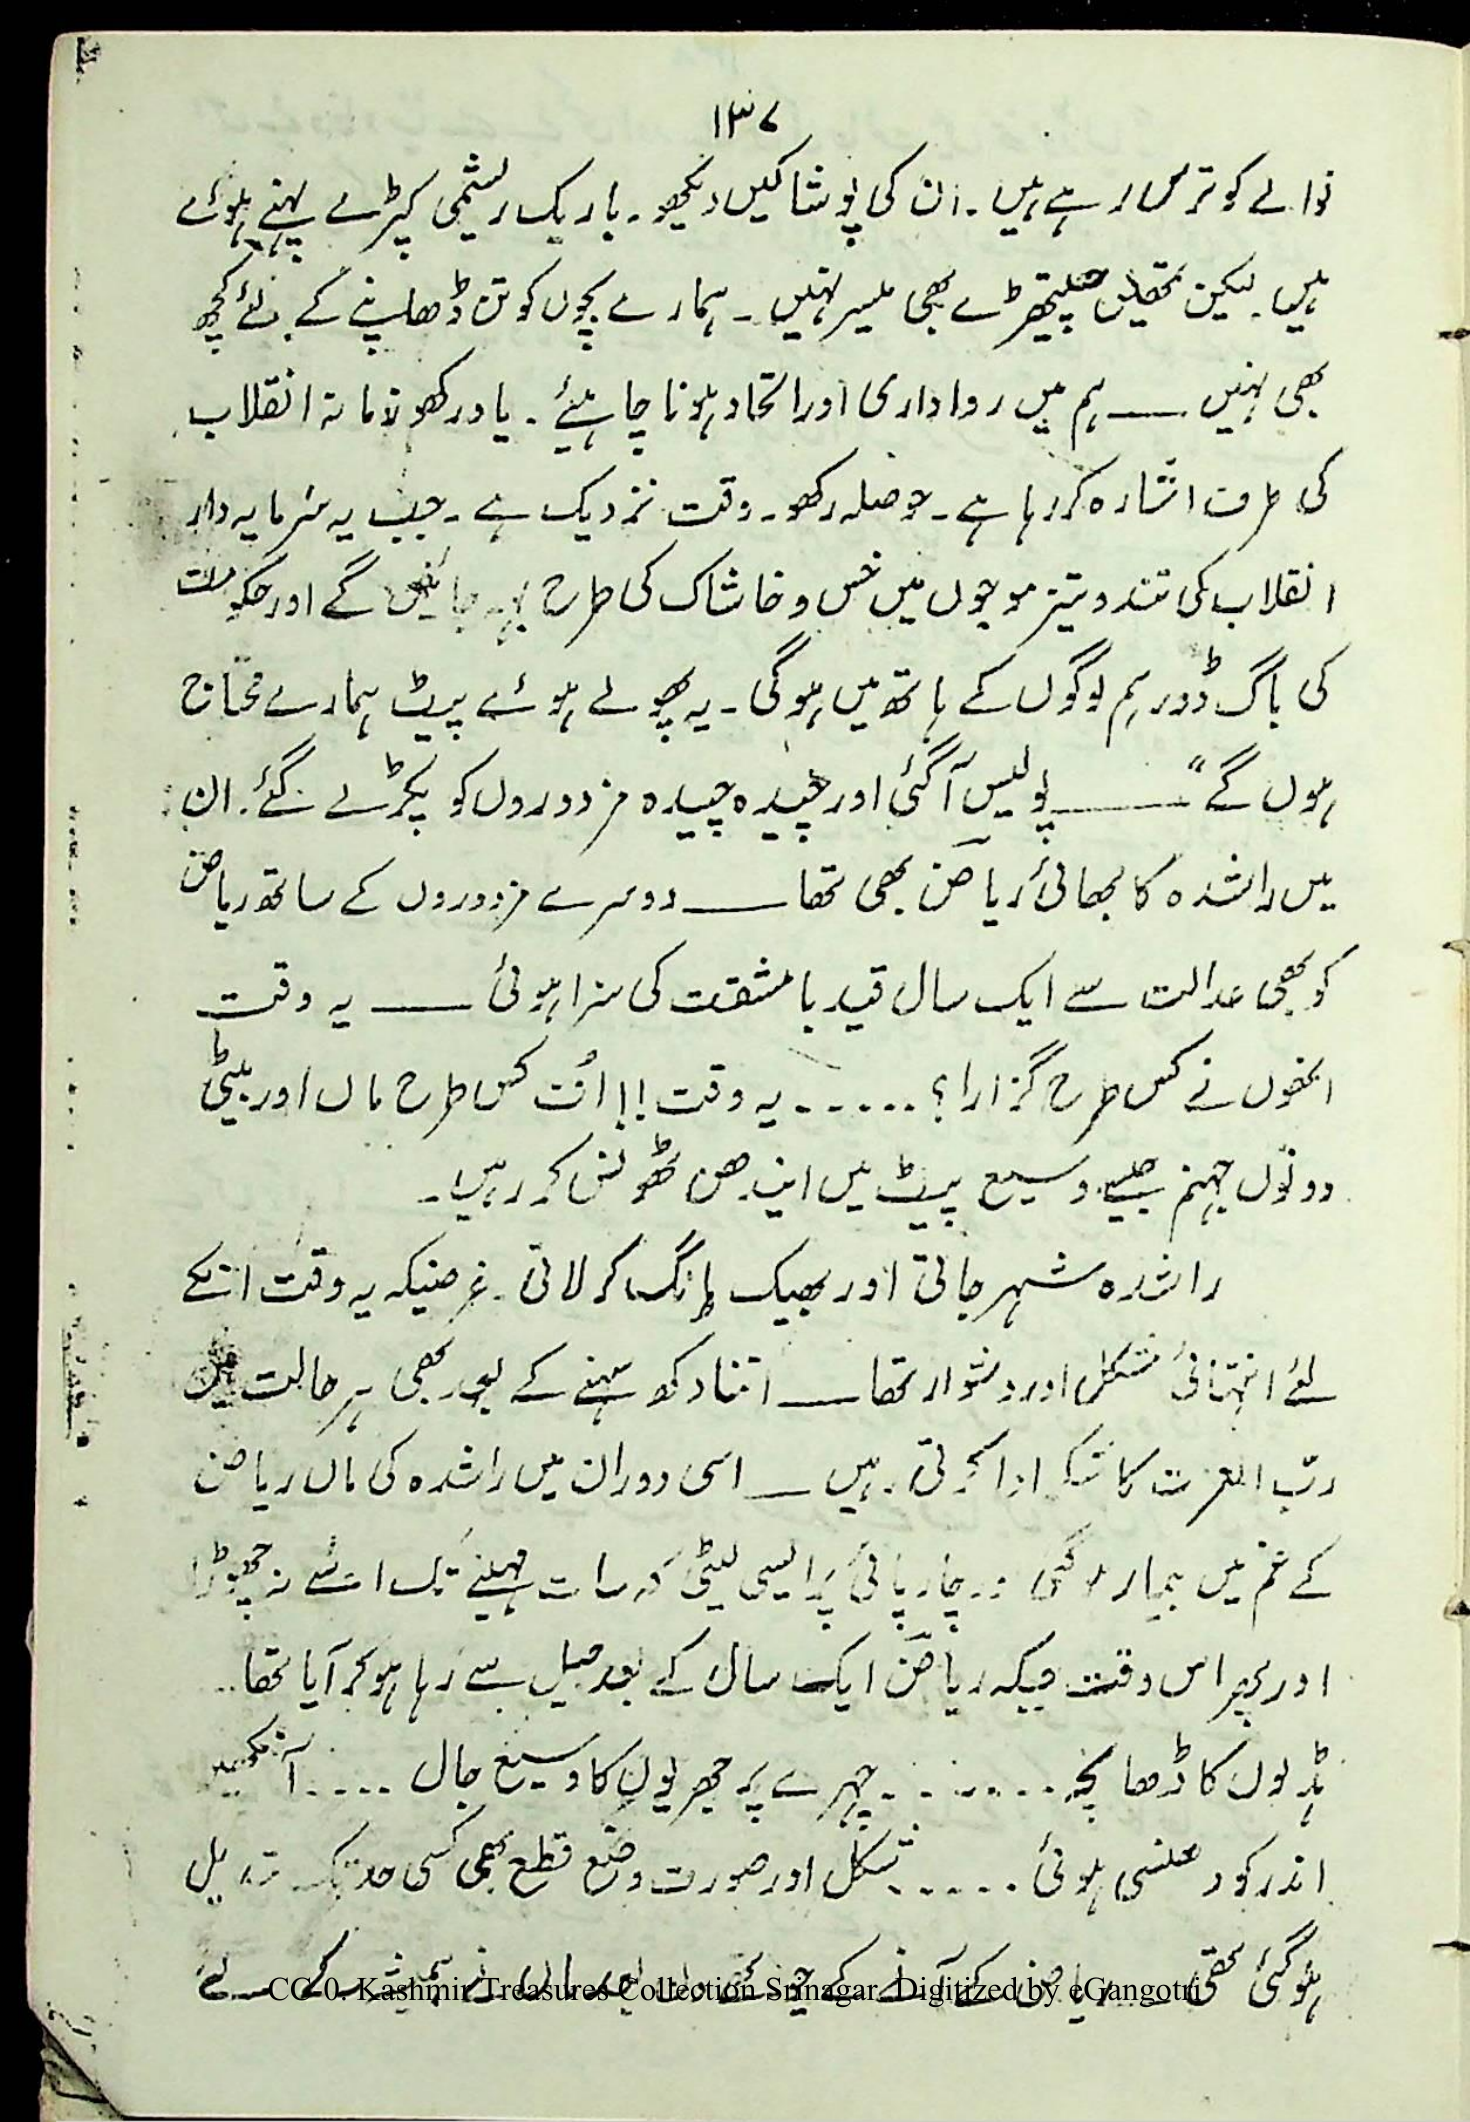 ۱۳۷
نوالے کو ترس رہے ہیں۔ ان کی پوشاکیں دیکھو۔ باریک ریشمی کپڑے پہنے ہوئے
ہیں۔ لیکن تمھیں چیتھڑے بھی میسر نہیں۔ ہمارے بچوں کو تن ڈھاپنے کے لئے کچھ
بھی نہیں ــــ ہم میں رواداری اور اتحاد ہونا چاہیئے۔ یاد رکھو زمانہ انقلاب
کی طرف اشارہ کر رہا ہے۔ حوصلہ رکھو۔ وقت نزدیک ہے۔ جب یہ سرمایہ دار
انقلاب کی تند و تیز موجوں میں خس و خاشاک کی طرح بہہ جائیں گے اور حکومت
کی باگ ڈور ہم لوگوں کے ہاتھ میں ہوگی۔ یہ پھولے ہوئے پیٹ ہمارے محتاج
ہوں گے" ــــــ پولیس آگئی اور چیدہ چیدہ مزدوروں کو پکڑ لے گئے۔ ان
میں راشدہ کا بھائی ریاض بھی تھا ــــ دوسرے مزدوروں کے ساتھ ریاض
کو بھی عدالت سے ایک سال قید با مشقت کی سزا ہوئی ــــ یہ وقت
انھوں نے کس طرح گزارا؟ ...... یہ وقت!! اُف کس طرح ماں اور بیٹی
دونوں جہنم جیسے وسیع پیٹ میں ایندھن ٹھونس کر رہیں۔
راشدہ شہر جاتی اور بھیک مانگ کر لاتی۔ غرضیکہ یہ وقت انکے
لئے انتہائی مشکل اور دشوار تھا ــــ اتنا دکھ سہنے کے بعد بھی ہر حالت میں
ربّ العزت کا شکر ادا کرتی رہیں ــــ اسی دوران میں راشدہ کی ماں ریاض
کے غم میں بیمار ہوگئی۔ چارپائی پر ایسی لیٹی کہ سات مہینے تک اسے نہ چھوڑا
اور پھر اس وقت جبکہ ریاض ایک سال کے بعد جیل سے رہا ہوکر آیا تھا۔
ہڈیوں کا ڈھانچہ ....... چہرے پر جھریوں کا وسیع جال .... آنکھیں
اندر کو دھنسی ہوئی ...... شکل اور صورت وضع قطع بھی کسی حد تک تبدیل
ہوگئی تھی ــــ ریاض کے آنے کے چند بعد ماں نے ہمیشہ کے لئے
CC-0. Kashmir Treasures Collection Srinagar. Digitized by eGangotri